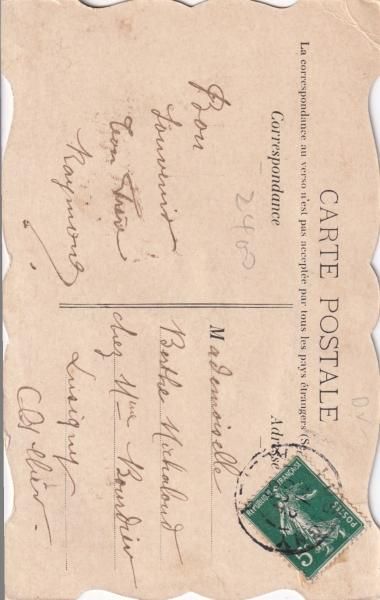 CARTE POSTALE
La correspondance au verso n'est pas acceptée par tous les pays étrangers (Se
Correspondance
Adresse
2400
Bon
Souvenir
ton frère
Raymond
Mademoiselle
Berthe Michaloud
chez Mme Bourdier
Lusigny
Allier
REPUBLIQUE FRANÇAISE
POSTES
5
DV